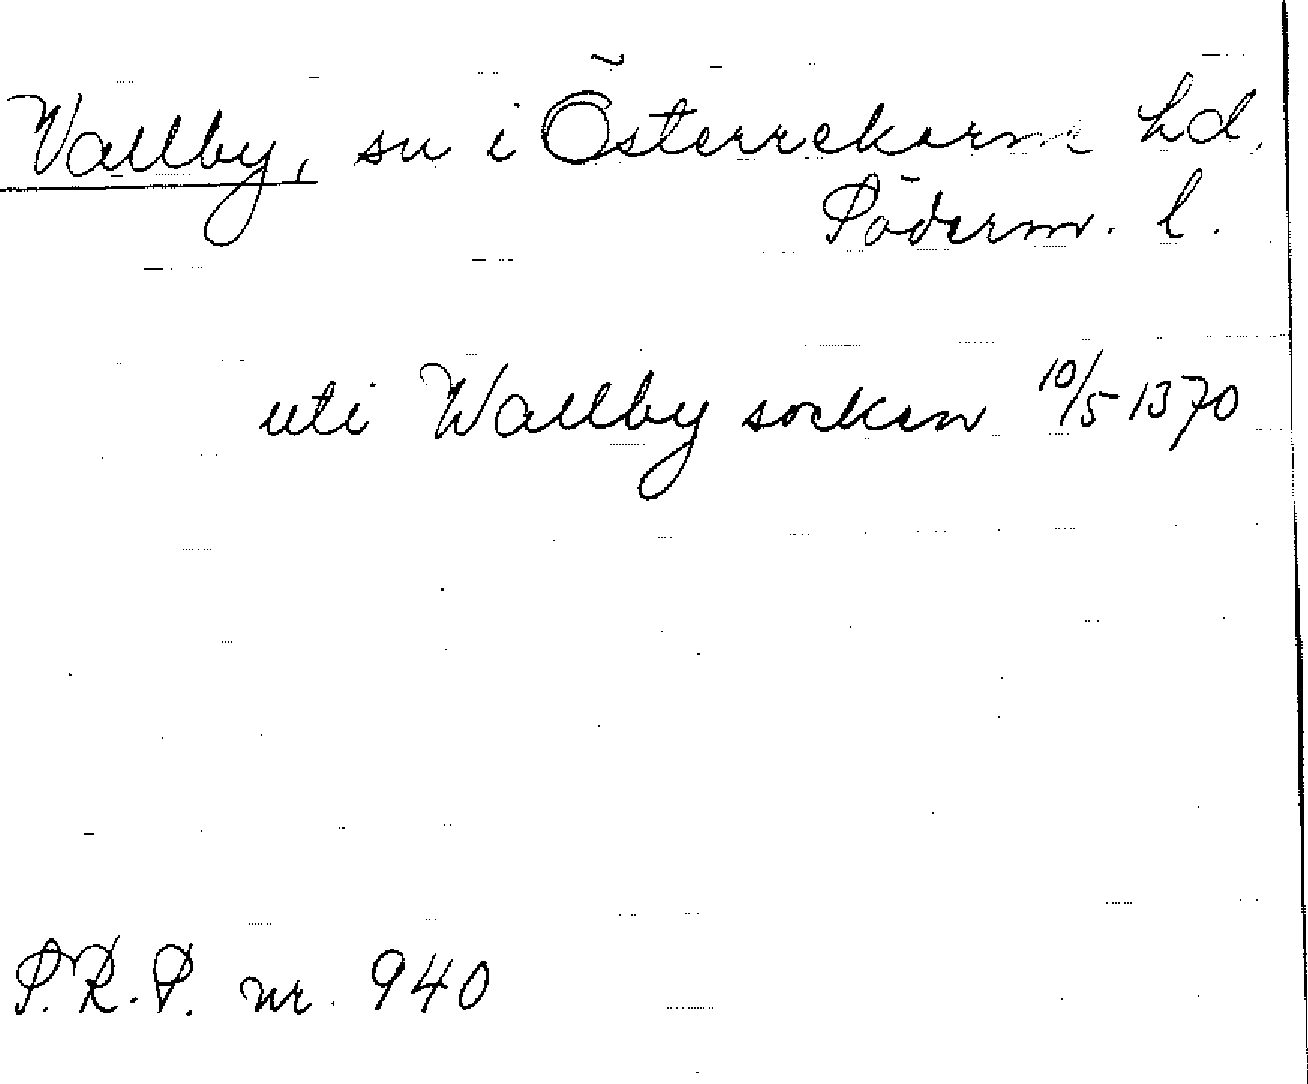 Vallby, sn i Österrekarne hd,
Söderm. l.
uti Wallby socken 10/5 1370
S.R.P. nr. 940